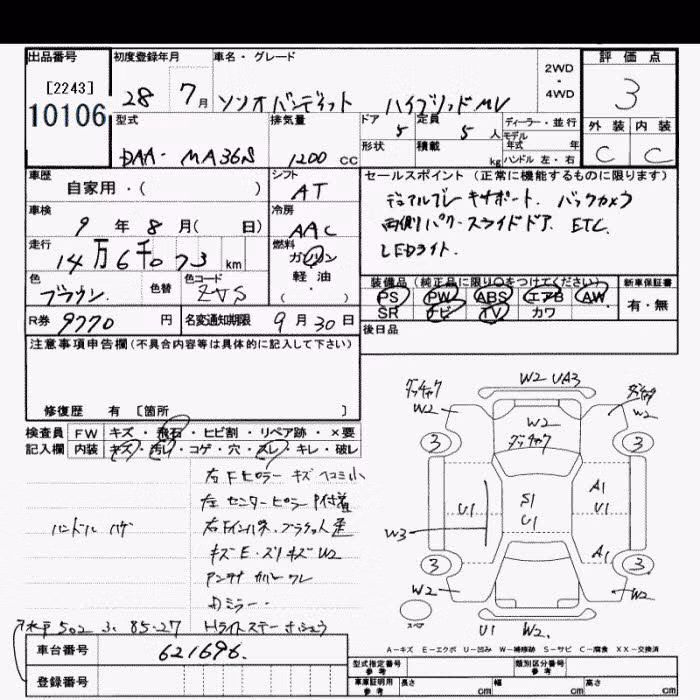 出品番号 初度登録年月 車名・グレード 評価点
[2243] 28 7月 ソリオバンディット ハイブリッドMV 2WD・4WD 3
10106 型式 排気量 ドア 5 定員 5人 ディーラー・並行 外装 内装
モデル年式 年
DAA-MA36S 1200cc 形状 積載 kg ハンドル 左・右 C C
車歴 シフト セールスポイント(正常に機能するものに限ります)
自家用・( ) AT デュアルブレーキサポート. バックカメラ
車検 冷房 両側パワースライドドア. ETC.
9年8月( 日) AAC LEDライト.
走行 燃料
14万6千073km ガソリン
軽・油
・( )
色 色替 色コード 装備品(純正品に限り○をつけてください) 新車保証書
ブラウン ZVS PS PW ABS エアB AW 有・無
SR ナビ TV カワ
R券 9770円 名変通知期限 9月30日 後日品
注意事項申告欄(不具合内容等は具体的に記入して下さい)
修復歴 有 [箇所 ]
検査員 FW キズ・飛石・ヒビ割・リペア跡・×要
記入欄 内装 キズ・汚レ・コゲ・穴・スレ・キレ・破レ
右Fピラー キズ ヘコミ小
左センターピラー P付着
ハンドル ハゲ
キズE・スリキズW2
アンテナ カバーワレ
Hライトステー
502 3. 85-27
車台番号 621696.
登録番号
W2 UA3
W2 W2 W2
3 3
A1
U1 S1 U1
U1
W3
A1
3 3
W2 W2
スペア
U1 W2.
A-キズ E-エクボ U-凹み W-補修跡 S-サビ C-腐食 XX-交換済
型式指定番号 参考 類別区分番号 参考
車庫証明用 参考 長さ cm 幅 cm 高さ cm